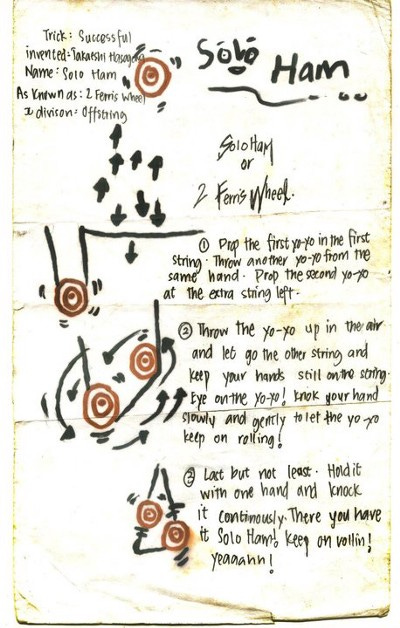 Trick: Successful
invented: Takatshi Hasagawa
Name: Solo Ham
As known as: 2 Ferris Wheel
X divison: Offstring
Solo Ham
Solo Ham
or
2 Ferris Wheel.
① Prop the first yo-yo in the first
string. Throw another yo-yo from the
same hand. Prop the second yo-yo
at the extra string left.
② Throw the yo-yo up in the air
and let go the other string and
keep your hands still on the string.
Eye on the yo-yo! knok your hand
slowly and gently to let the yo-yo
keep on rolling!
② Lact but not least. Hold it
with one hand and knock
it continously. There you have
it Solo Ham! keep on rollin!
Yeaaahn!